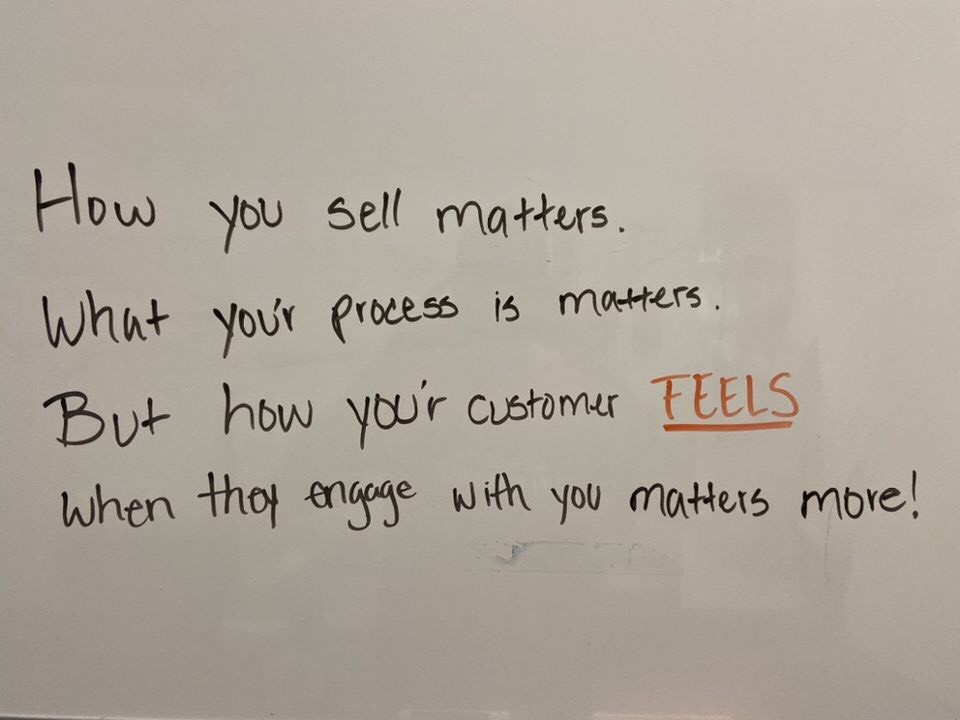 How you sell matters.
What you'r process is matters.
But how you'r customer FEELS
when they engage with you matters more!